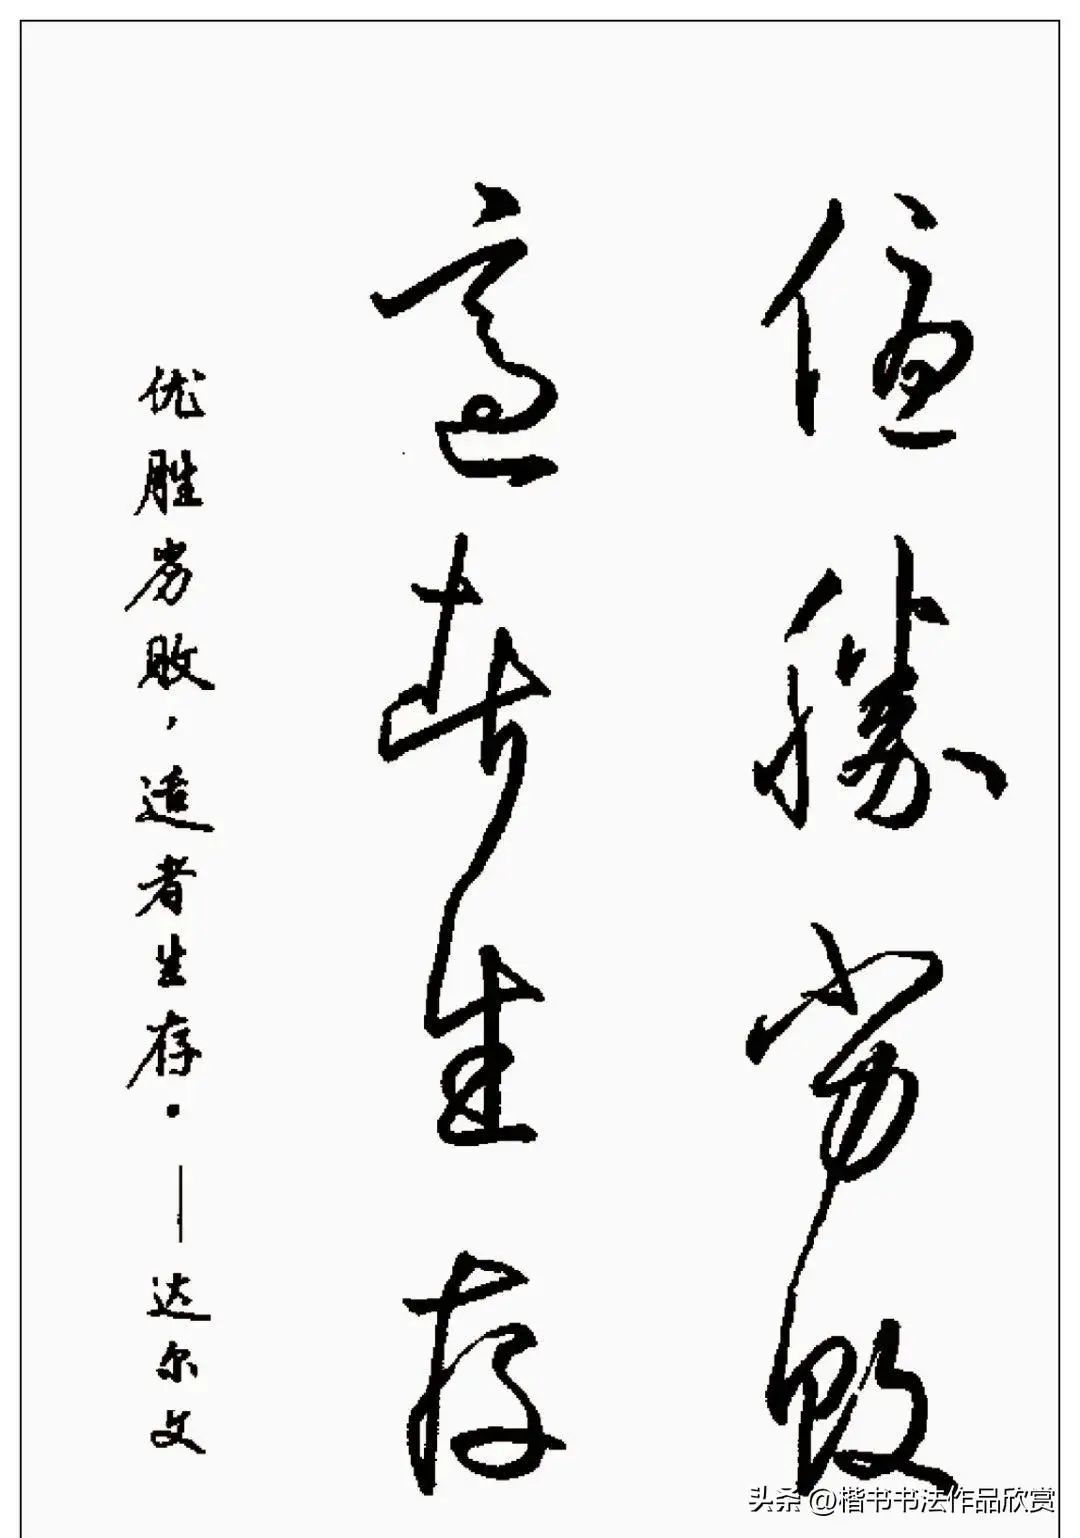 優勝劣敗
適者生存
优胜劣败，适者生存。——达尔文
头条 @楷书书法作品欣赏